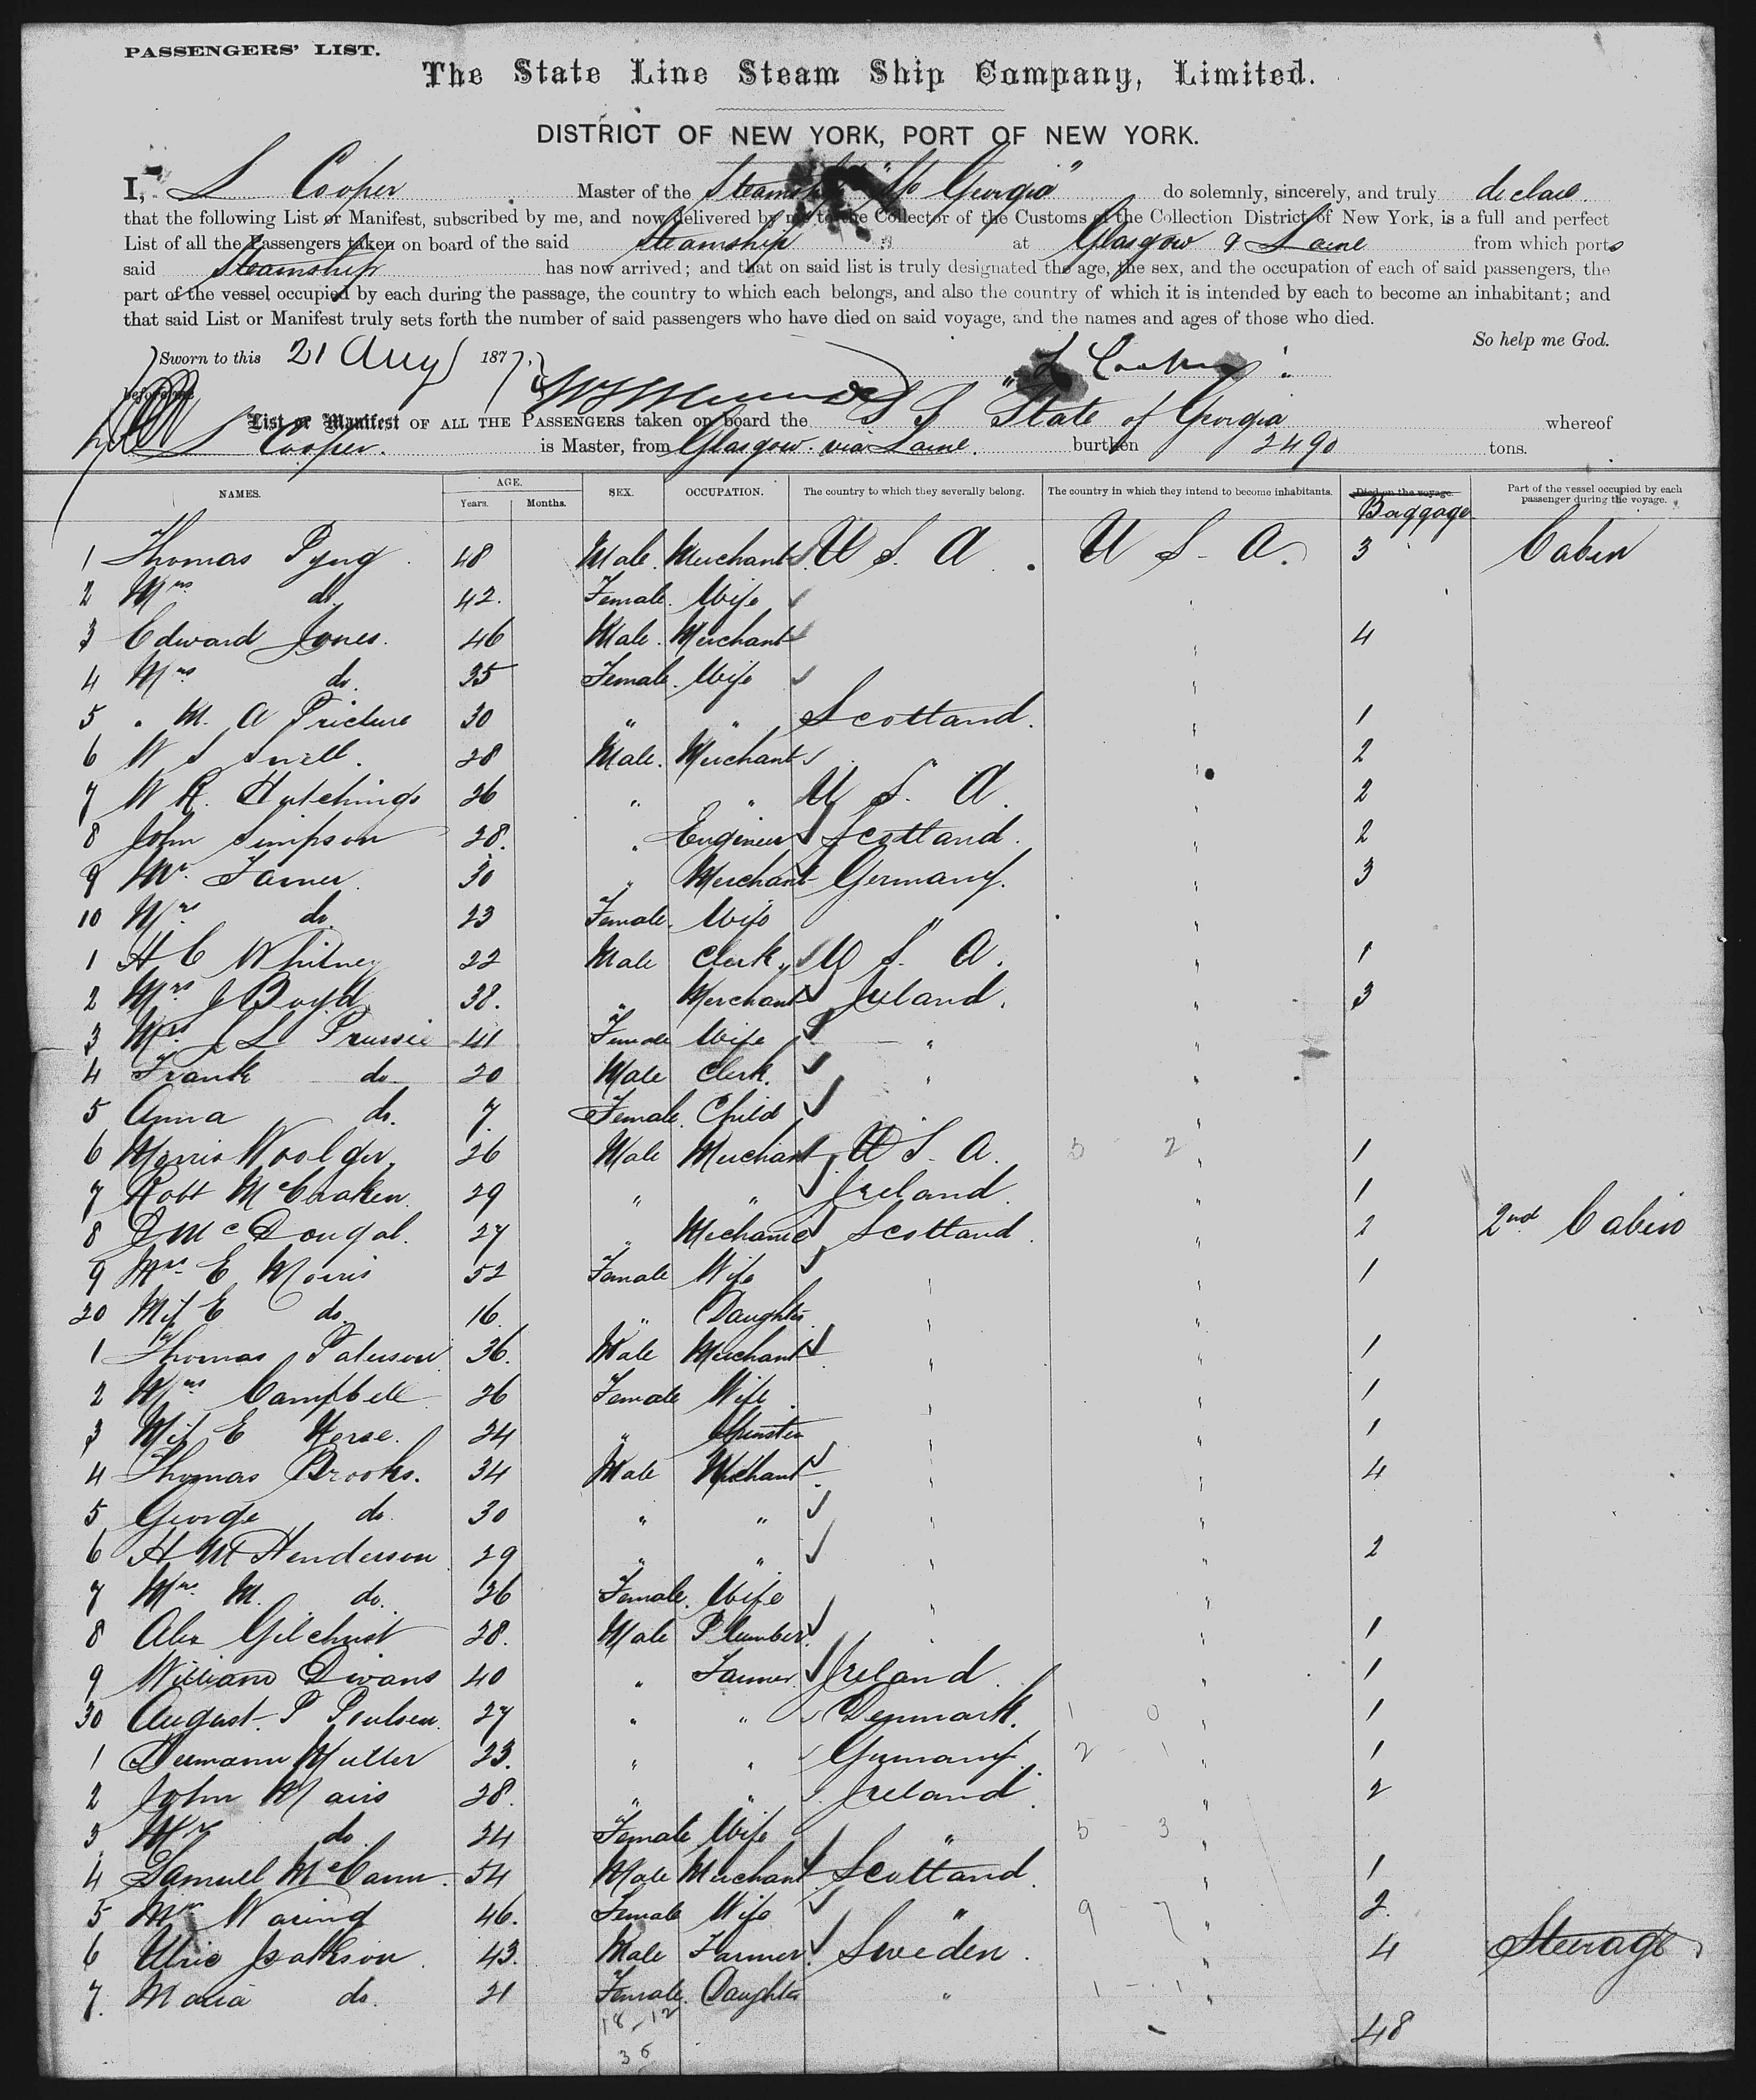 PASSENGERS' LIST.
The State Line Steam Ship Company, Limited.
DISTRICT OF NEW YORK, PORT OF NEW YORK.
I, L Cooper Master of the Steamship "So Georgia" do solemnly, sincerely, and truly declare
that the following List or Manifest, subscribed by me, and now delivered by me to the Collector of the Customs of the Collection District of New York, is a full and perfect
List of all the Passengers taken on board of the said Steamship at Glasgow & Larne from which ports
said Steamship has now arrived; and that on said list is truly designated the age, the sex, and the occupation of each of said passengers, the
part of the vessel occupied by each during the passage, the country to which each belongs, and also the country of which it is intended by each to become an inhabitant; and
that said List or Manifest truly sets forth the number of said passengers who have died on said voyage, and the names and ages of those who died.
So help me God.
Sworn to this 21 Aug 1877, L Cooper
before me
List or Manifest OF ALL THE PASSENGERS taken on board the S S State of Georgia whereof
L Cooper. is Master, from Glasgow via Larne. burthen 2490 tons.
NAMES. AGE. Years. Months. SEX. OCCUPATION. The country to which they severally belong. The country in which they intend to become inhabitants. Died on the voyage. Baggage Part of the vessel occupied by each passenger during the voyage.
1 Thomas Pyng 48 Male Merchant U S A U S A. 3 Cabin
2 Mrs do. 42. Female. Wife
3 Edward Jones. 46 Male. Merchant 4
4 Mrs do. 35 Female. Wife
5 " M. A 30 " " Scotland. 1
6 W S Snell. 28 Male. Merchant " 2
7 W R. Hutchings 26 " " U S. A. 2
8 John Simpson 28. " Engineer Scotland. 2
9 Mr. Farner. 30 " Merchant Germany. 3
10 Mrs do. 23 Female. Wife "
1 H C Whitney 22 Male Clerk U S. A. 1
2 Mrs J Boyd 38. " Merchant Ireland. 3
3 Mrs J L Prussie 41 Female Wife "
4 Frank do 20 Male Clerk. "
5 Anna do. 7. Female. Child
6 Morris Woolger 26 Male Merchant U S. A. 5 2 1
7 Robt McCraken. 29 " " Ireland. 1
8 J McDougal. 27 " Mechanic Scotland. 2 2nd Cabin
9 Mrs E Morris 52 Female Wife 1
20 Miss E do. 16. " Daughter
1 Thomas Paterson 36. Male Merchant 1
2 Mrs Campbell 26 Female Wife 1
3 Miss E 24 " Spinster 1
4 Thomas Brooks. 34 Male Merchant 4
5 George do. 30 " "
6 H M Henderson 29 " " 2
7 Mrs. M. do. 26 Female. Wife
8 Alex Gilchrist 28. Male Plumber 1
9 William Divans 40 " Farmer Ireland. 1
30 August. P Poulsen. 27 " " Denmark. 1 0 1
1 Hermann Muller 23. " " Germany. 2 1 1
2 John Mairs 28. " " Ireland. 2
3 Mrs do. 24 Female Wife " 5 3
4 Samuel McCann. 54 Male Merchant Scotland. 1
5 Mrs Waring 46. Female Wife " 9 7 2.
6 43. Male Farmer. Sweden. 4 Steerage
7. Maria do. 21 Female. Daughter " 1 - 1
18-12 48
36